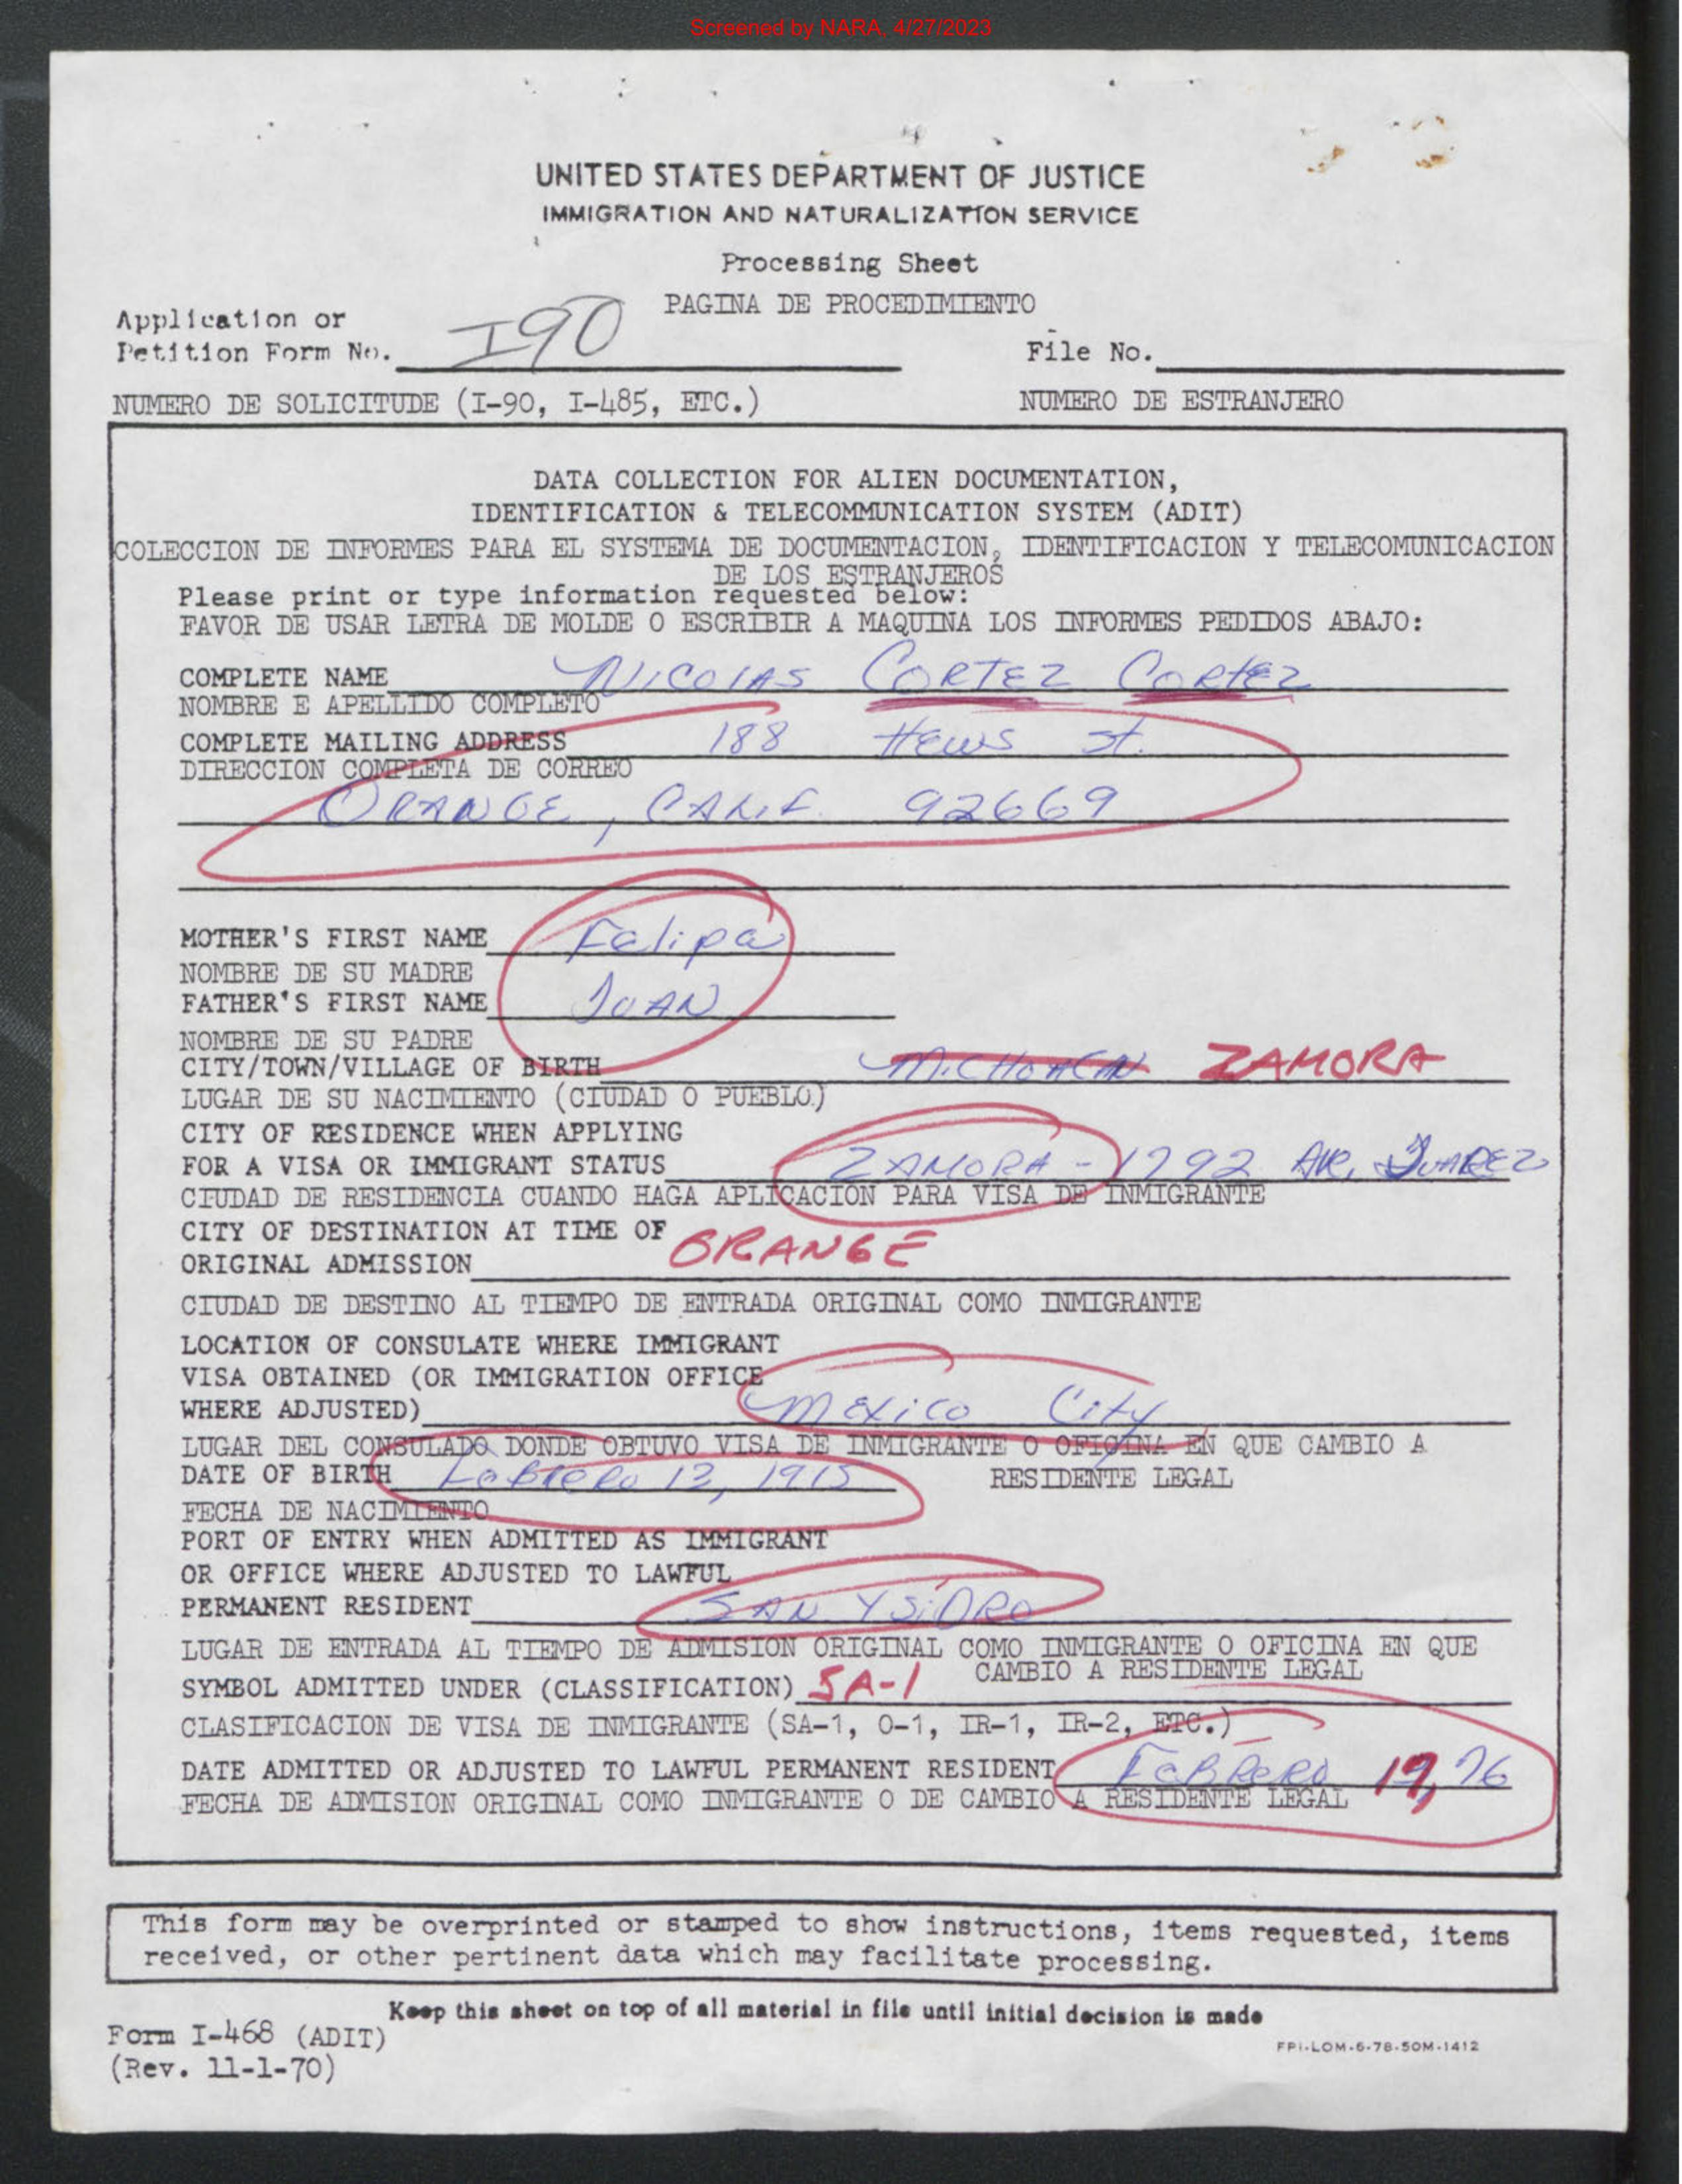 Screened by NARA, 4/27/2023
UNITED STATES DEPARTMENT OF JUSTICE
IMMIGRATION AND NATURALIZATION SERVICE
Processing Sheet
PAGINA DE PROCEDIMIENTO
Application or
Petition Form No. I90 File No.
NUMERO DE SOLICITUDE (I-90, I-485, ETC.) NUMERO DE ESTRANJERO
DATA COLLECTION FOR ALIEN DOCUMENTATION,
IDENTIFICATION & TELECOMMUNICATION SYSTEM (ADIT)
COLECCION DE INFORMES PARA EL SYSTEMA DE DOCUMENTACION, IDENTIFICACION Y TELECOMUNICACION
DE LOS ESTRANJEROS
Please print or type information requested below:
FAVOR DE USAR LETRA DE MOLDE O ESCRIBIR A MAQUINA LOS INFORMES PEDIDOS ABAJO:
COMPLETE NAME NICOLAS CORTEZ CORTEZ
NOMBRE E APELLIDO COMPLETO
COMPLETE MAILING ADDRESS 188 Hews St.
DIRECCION COMPLETA DE CORREO
ORANGE, CALIF. 92669
MOTHER'S FIRST NAME Felipa
NOMBRE DE SU MADRE
FATHER'S FIRST NAME JUAN
NOMBRE DE SU PADRE
CITY/TOWN/VILLAGE OF BIRTH MICHOACAN ZAMORA
LUGAR DE SU NACIMIENTO (CIUDAD O PUEBLO)
CITY OF RESIDENCE WHEN APPLYING
FOR A VISA OR IMMIGRANT STATUS ZAMORA - 1792 AVE. JUAREZ
CIUDAD DE RESIDENCIA CUANDO HAGA APLICACION PARA VISA DE INMIGRANTE
CITY OF DESTINATION AT TIME OF
ORIGINAL ADMISSION ORANGE
CIUDAD DE DESTINO AL TIEMPO DE ENTRADA ORIGINAL COMO INMIGRANTE
LOCATION OF CONSULATE WHERE IMMIGRANT
VISA OBTAINED (OR IMMIGRATION OFFICE
WHERE ADJUSTED) Mexico City
LUGAR DEL CONSULADO DONDE OBTUVO VISA DE INMIGRANTE O OFICINA EN QUE CAMBIO A
RESIDENTE LEGAL
DATE OF BIRTH FeBrero 12, 1915
FECHA DE NACIMIENTO
PORT OF ENTRY WHEN ADMITTED AS IMMIGRANT
OR OFFICE WHERE ADJUSTED TO LAWFUL
PERMANENT RESIDENT SAN YSiDRO
LUGAR DE ENTRADA AL TIEMPO DE ADMISION ORIGINAL COMO INMIGRANTE O OFICINA EN QUE
CAMBIO A RESIDENTE LEGAL
SYMBOL ADMITTED UNDER (CLASSIFICATION) SA-1
CLASIFICACION DE VISA DE INMIGRANTE (SA-1, O-1, IR-1, IR-2, ETC.)
DATE ADMITTED OR ADJUSTED TO LAWFUL PERMANENT RESIDENT FeBRERO 19, 76
FECHA DE ADMISION ORIGINAL COMO INMIGRANTE O DE CAMBIO A RESIDENTE LEGAL
This form may be overprinted or stamped to show instructions, items requested, items
received, or other pertinent data which may facilitate processing.
Keep this sheet on top of all material in file until initial decision is made
Form I-468 (ADIT)
(Rev. 11-1-70)
FPI-LOM-6-78-50M-1412